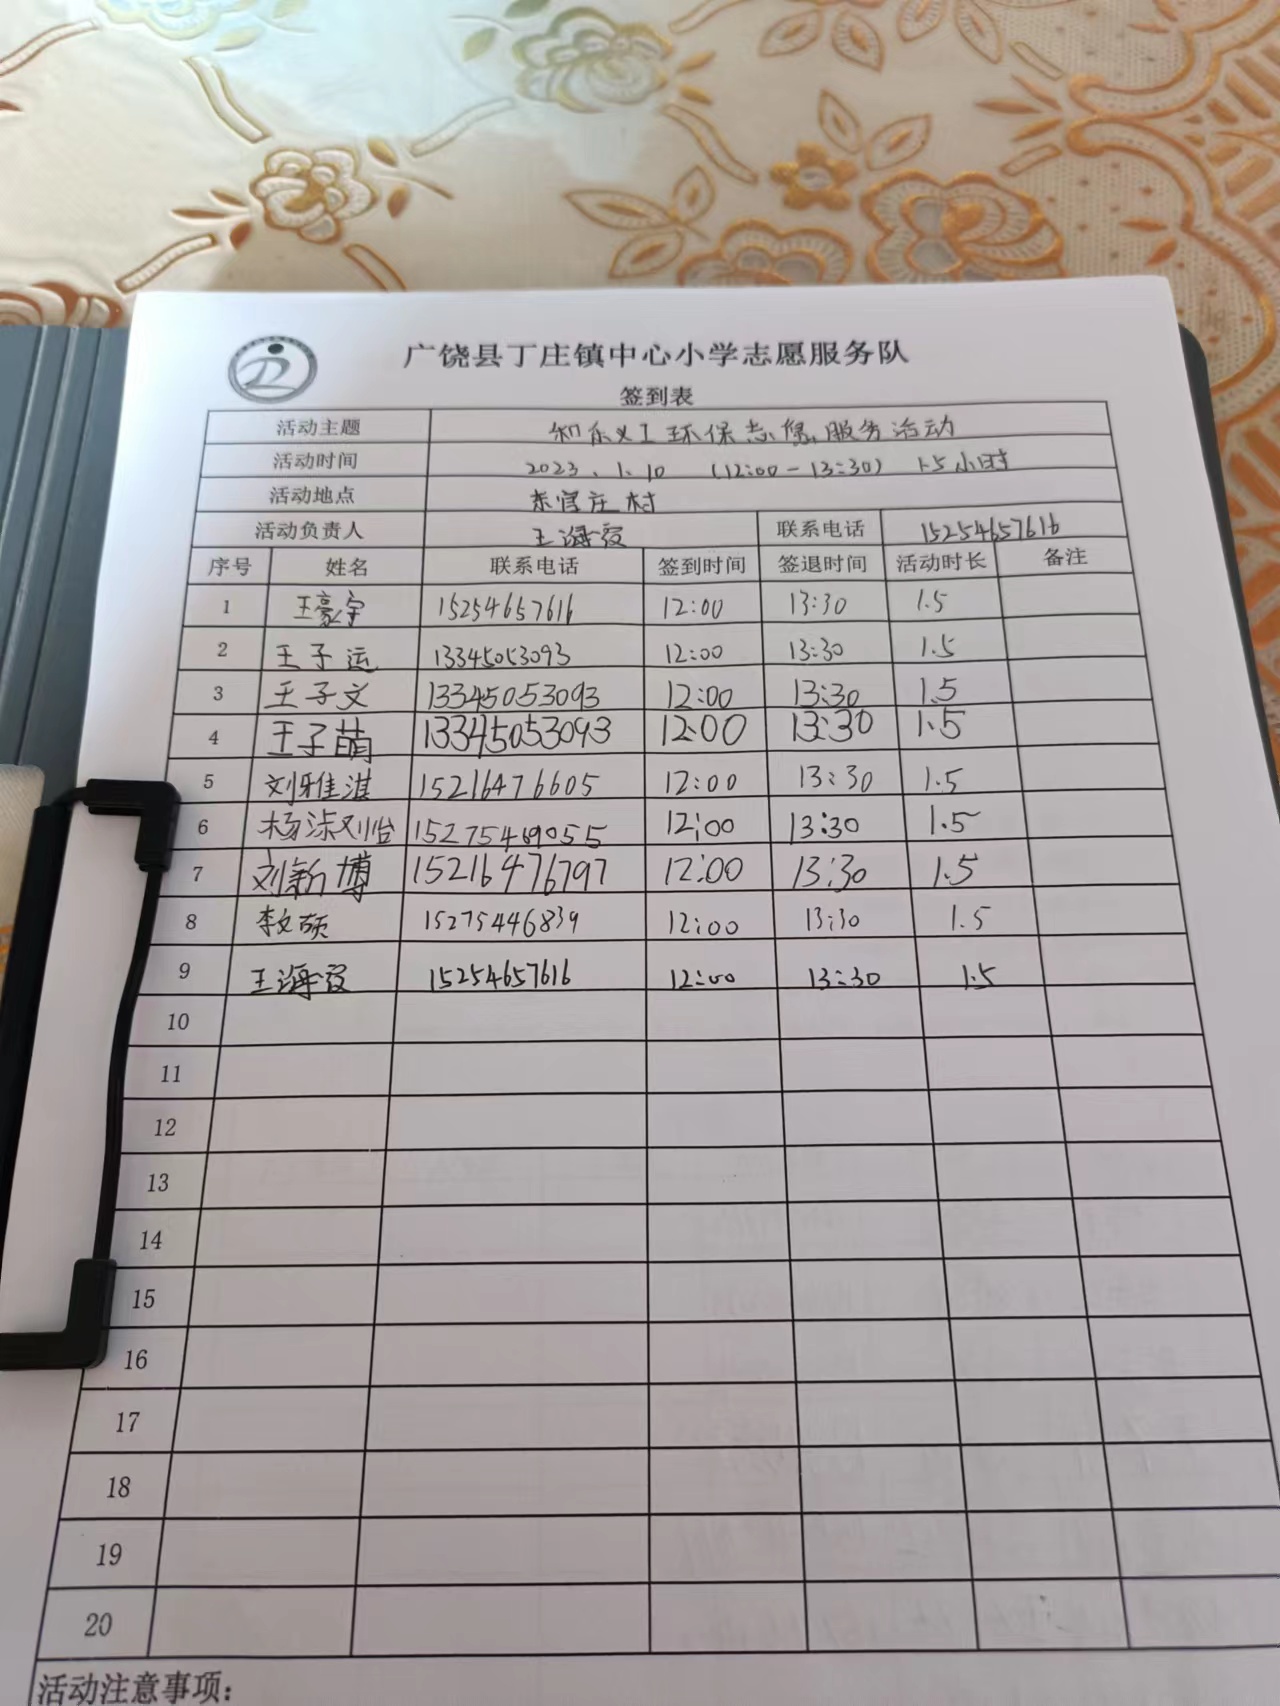 广饶县丁庄镇中心小学志愿服务队
签到表
活动主题 和乐义工环保志愿服务活动
活动时间 2023.1.10 (12:00-13:30) 1.5小时
活动地点 东官庄村
活动负责人 王海霞 联系电话 15254657616
序号 姓名 联系电话 签到时间 签退时间 活动时长 备注
1 王豪宇 15254657616 12:00 13:30 1.5
2 王子运 13345053093 12:00 13:30 1.5
3 王子文 13345053093 12:00 13:30 1.5
4 王子萌 13345053093 12:00 13:30 1.5
5 刘雅淇 15216476605 12:00 13:30 1.5
6 15275469055 12:00 13:30 1.5
7 刘新博 15216476797 12:00 13:30 1.5
8 李文硕 15275446839 12:00 13:30 1.5
9 王海霞 15254657616 12:00 13:30 1.5
10
11
12
13
14
15
16
17
18
19
20
活动注意事项：